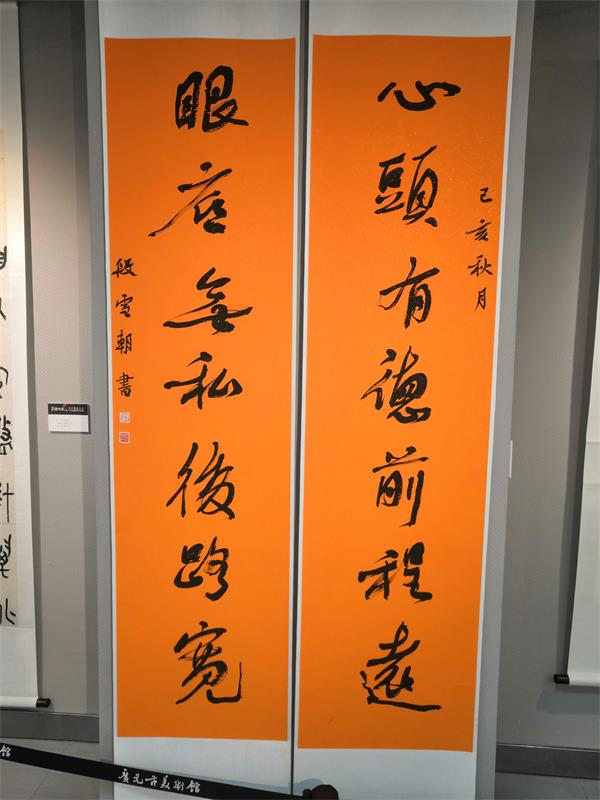 心頭有德前程遠
己亥秋月
眼底無私後路寬
段雪朝書
廣元市美術館
館